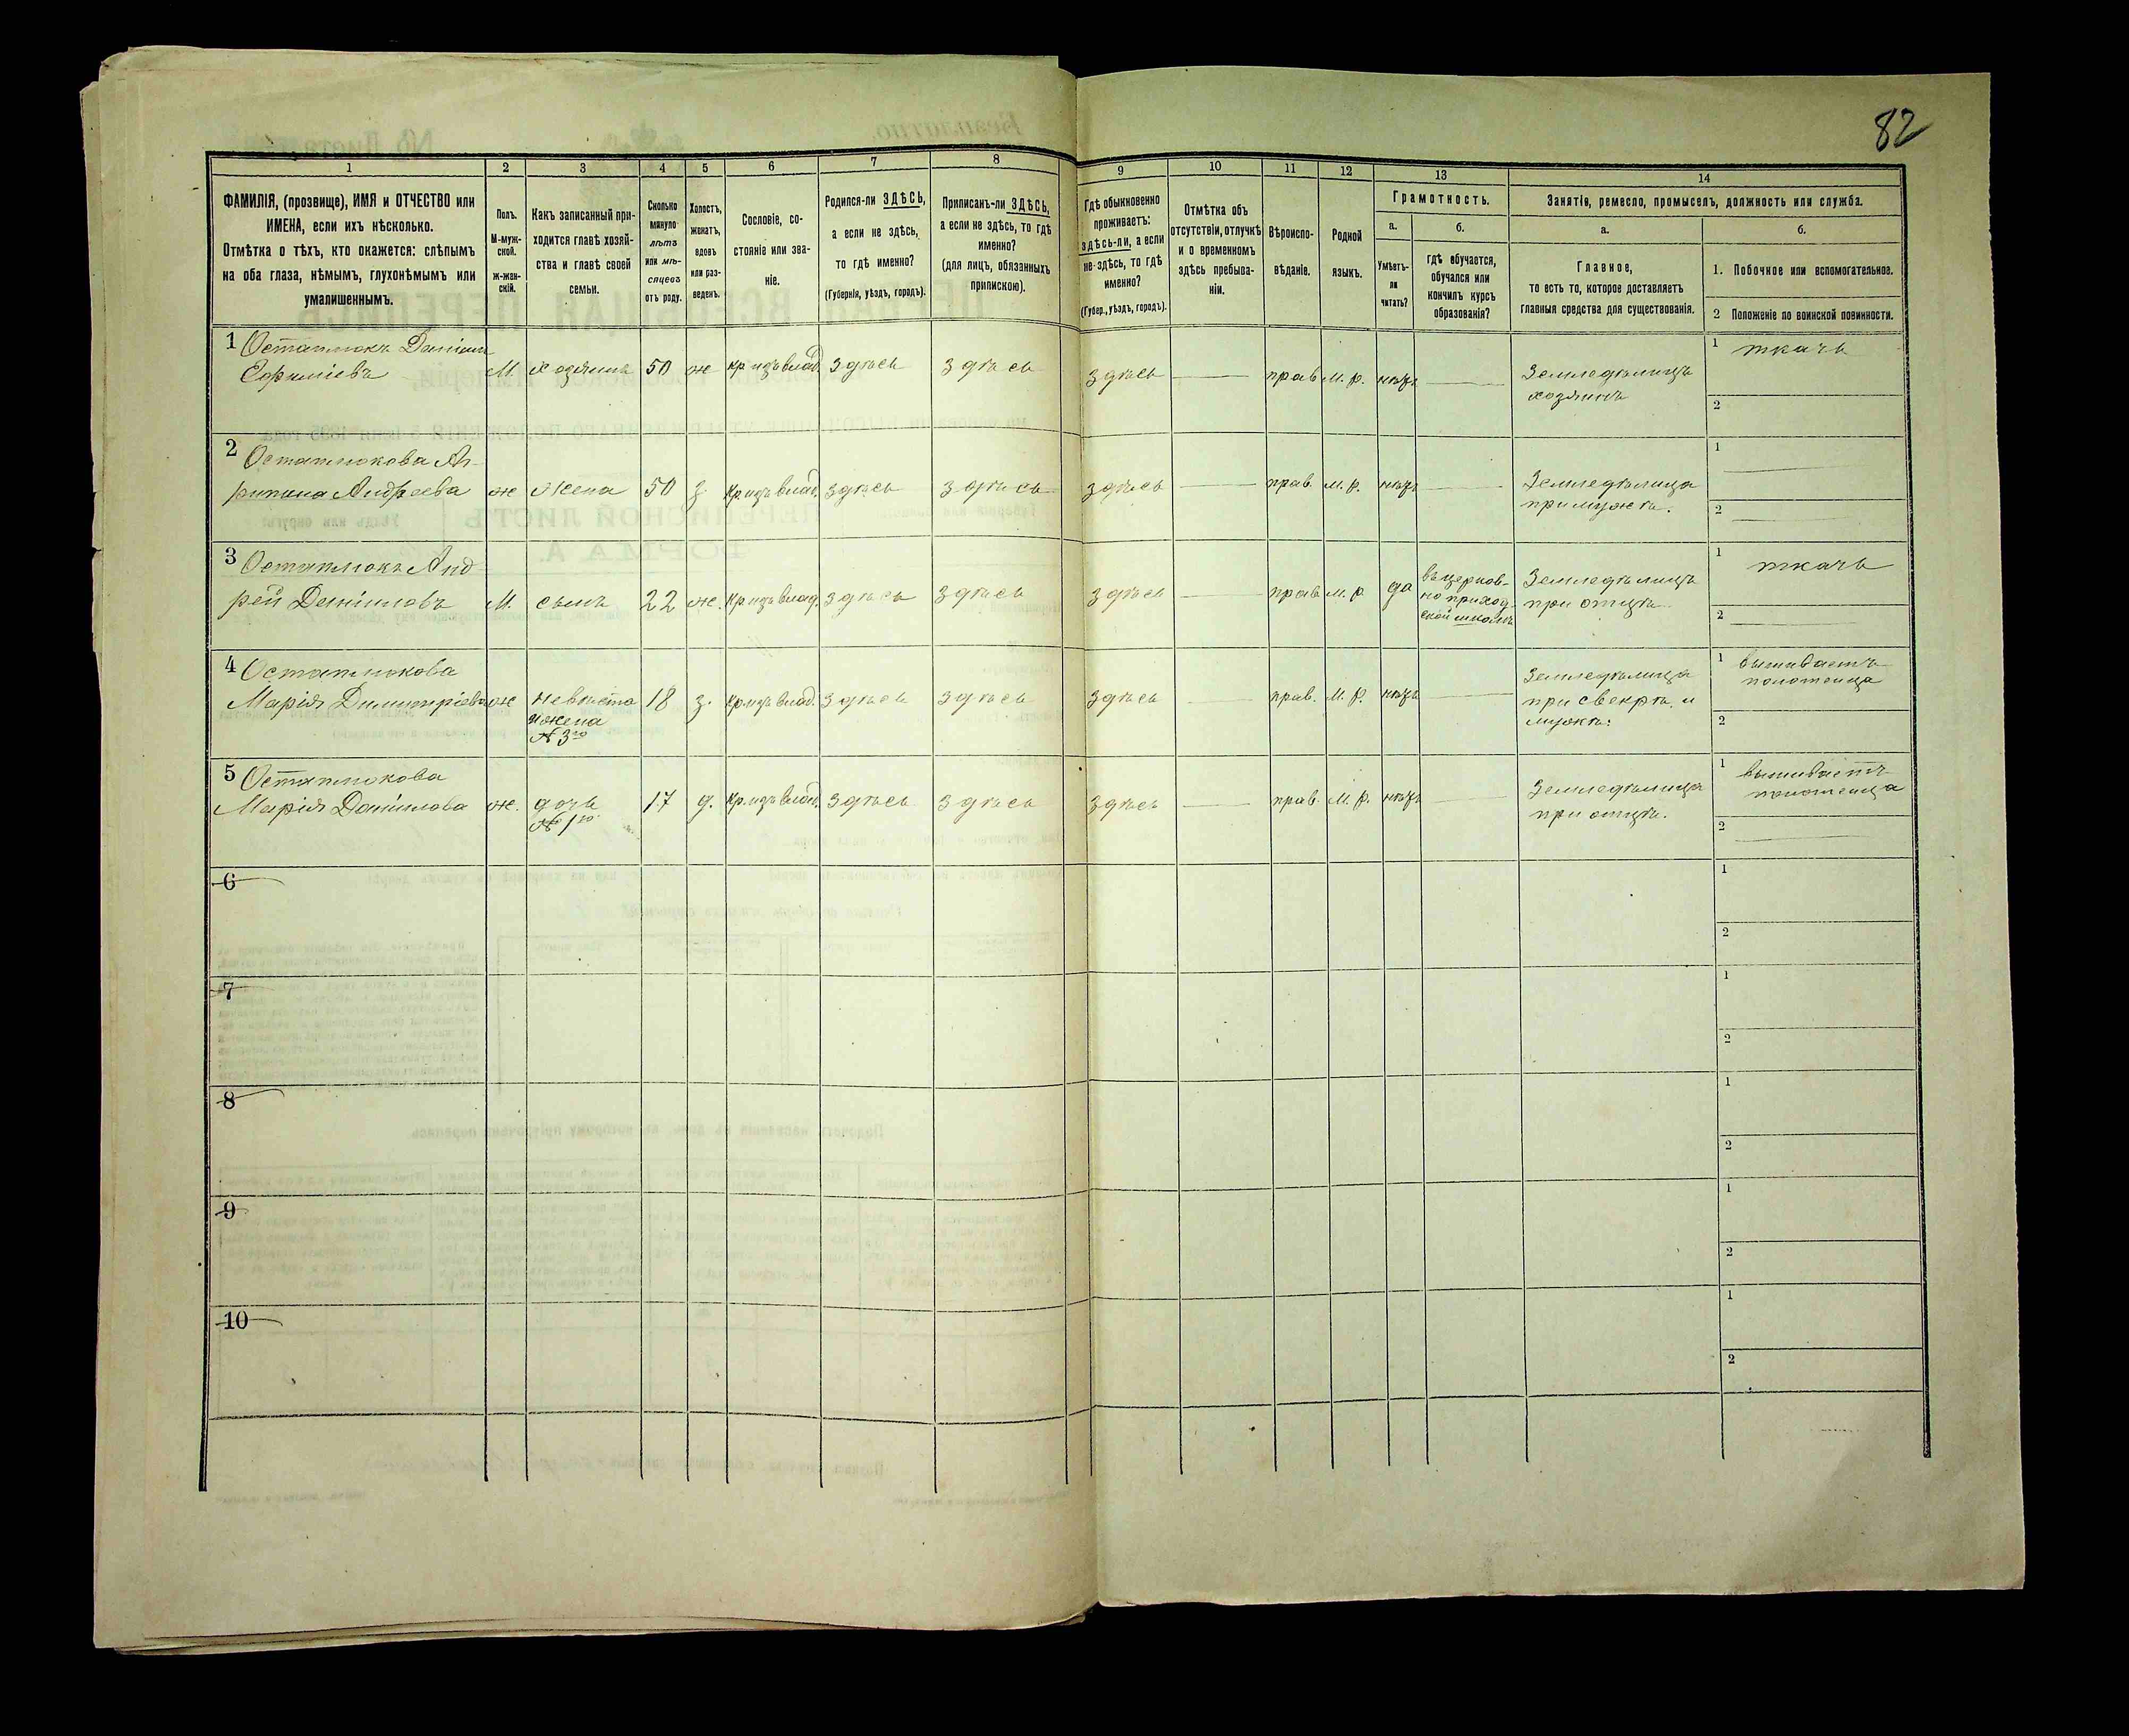 82
1 2 3 4 5 6 7 8 9 10 11 12 13 14
ФАМИЛІЯ, (прозвище), ИМЯ и ОТЧЕСТВО или
ИМЕНА, если ихъ нѣсколько.
Отмѣтка о тѣхъ, кто окажется: слѣпымъ
на оба глаза, нѣмымъ, глухонѣмымъ или
умалишеннымъ.
Полъ.
М-муж-
ской.
ж-жен-
скій.
Какъ записанный при-
ходится главѣ хозяй-
ства и главѣ своей
семьи.
Сколько
минуло
лѣтъ
или мѣ-
сяцевъ
отъ роду.
Холостъ,
женатъ,
вдовъ
или раз-
веденъ.
Сословіе, со-
стояніе или зва-
ніе.
Родился-ли ЗДѢСЬ,
а если не здѣсь,
то гдѣ именно?
(Губернія, уѣздъ, городъ).
Приписанъ-ли ЗДѢСЬ,
а если не здѣсь, то гдѣ
именно?
(для лицъ, обязанныхъ
припискою).
Гдѣ обыкновенно
проживаетъ:
здѣсь-ли, а если
не здѣсь, то гдѣ
именно?
(Губер., уѣздъ, городъ).
Отмѣтка объ
отсутствіи, отлучкѣ
и о временномъ
здѣсь пребыва-
ніи.
Вѣроиспо-
вѣданіе.
Родной
языкъ.
Грамотность.
а.
Умѣетъ-
ли
читать?
б.
гдѣ обучается,
обучался или
кончилъ курсъ
образованія?
Занятія, ремесло, промыселъ, должность или служба.
а.
Главное,
то есть то, которое доставляетъ
главныя средства для существованія.
б.
1. Побочное или вспомогательное.
2 Положеніе по воинской повинности.
1 Остапнюкъ Даніилъ
Ефиміевъ М. хозяинъ 50 ж кр изъ влад. здѣсь здѣсь здѣсь прав м. р. нѣтъ Земледѣлецъ
хозяинъ
1 ткачъ
2
2 Остапнюкова Аг-
рипина Андреева ж жена 50 з. кр. изъ влад. здѣсь здѣсь здѣсь прав. м. р. нѣтъ Земледѣлица
при мужѣ.
1
2
3 Остапнюкъ Анд
рей Даніиловъ М. сынъ 22 ж. кр. изъ влад. здѣсь здѣсь здѣсь прав м. р да въ церков-
но приход-
ской школѣ
Земледѣлецъ
при отцѣ
1 ткачъ
2
4 Остапнюкова
Марія Димитріева ж невѣста
и жена
№ 3го
18 з. кр. изъ влад. здѣсь здѣсь здѣсь прав. М. р. нѣтъ Земледѣлица
при свекрѣ и
мужѣ.
1 вышиваетъ
полотенца
2
5 Остапнюкова
Марія Даніилова ж. дочь
№ 1го
17 д. кр. изъ влад. здѣсь здѣсь здѣсь прав. М. р. нѣтъ Земледѣлица
при отцѣ.
1 вышиваетъ
полотенца
2
6
1
2
7
1
2
8
1
2
9
1
2
10
1
2